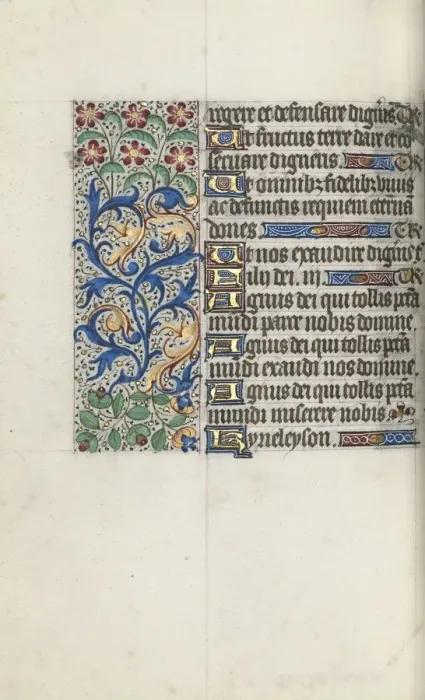 regere et defensare digneris Te R
Ut fructus terre dare et co
servare digneris. Te R
Ut omnibz fidelibz vivis
ac defunctis requiem eterna
dones Te R
Ut nos exaudire digneris t
Fily dei. iii Te R
Agnus dei qui tollis pcta
mudi parce nobis domine.
Agnus dei qui tollis pcta
mudi exaudi nos domine.
Agnus dei qui tollis pcta
mundi miserere nobis.
Kyrieleyson.